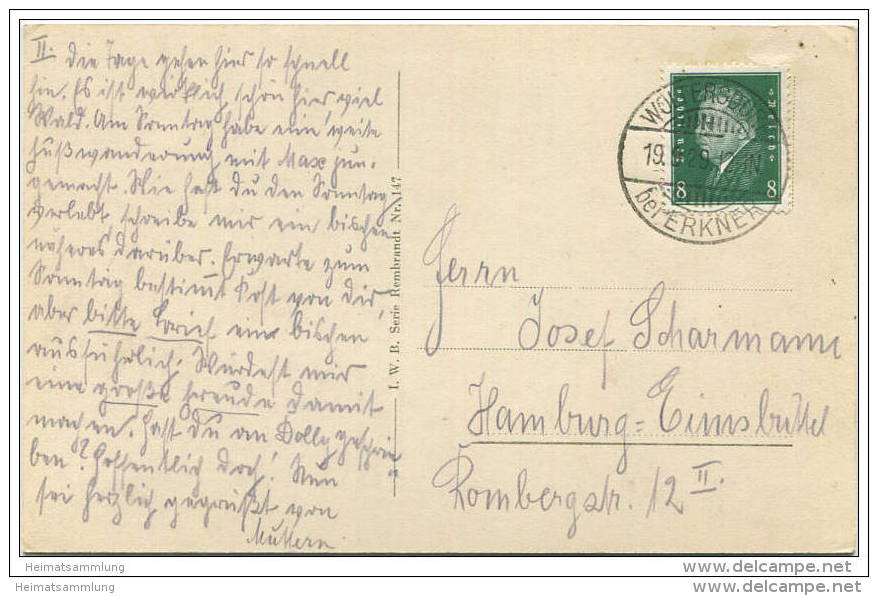 II. Die Tage gehen hier so schnell
hin. Es ist wirklich schön hier, viel
Wald. Am Sonntag habe eine weite
Fußwanderung mit Max jun.
gemacht. Wie hast du den Sonntag
verlebt, schreibe mir ein bischen
näheres darüber. Erwarte zum
Sonntag bestimmt Post von dir,
aber bitte Brief ein bischen
ausführlich. Würdest mir
eine große Freude damit
machen. Hast du an Dolly geschrie=
ben? Hoffentlich doch! Nun
sei herzlich gegrüßt von
Muttern.
I. W. B. Serie Rembrandt Nr. 147
8 8
bei ERKNER
Herrn
Josef Scharmann
Hamburg=Eimsbüttel
Rombergstr. 12 II.
Heimatsammlung
Heimatsammlung
www.delcampe.net
www.delcampe.net